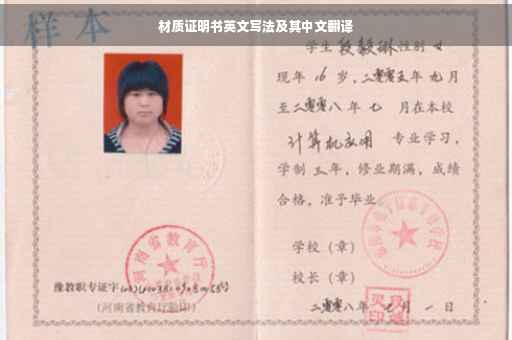 材质证明书英文写法及其中文翻译
样本
学生段毅琳性别 女
现年 16 岁,二零零五年 九 月
至二零零八年 七 月在本校
计算机应用 专业学习,
学制 三 年,修业期满,成绩
合格,准予毕业。
学校(章)
校长(章)
二零零八年 七 月 一 日
豫教职专证字
(河南省教育厅验印)
河南省教育厅